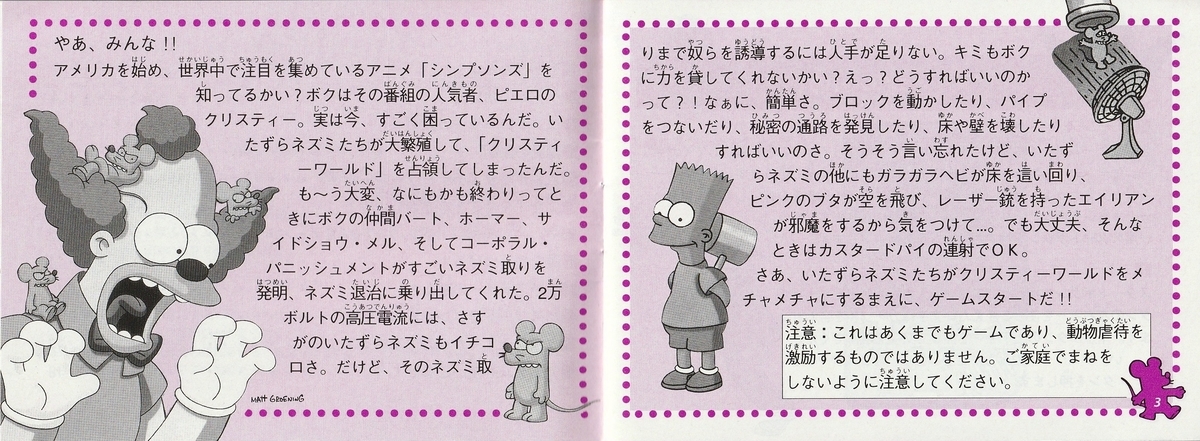 やあ、みんな!!
アメリカを始め、世界中で注目を集めているアニメ「シンプソンズ」を
知ってるかい?ボクはその番組の人気者、ピエロの
クリスティー。実は今、すごく困っているんだ。い
たずらネズミたちが大繁殖して、「クリスティ
ーワールド」を占領してしまったんだ。
も〜う大変、なにもかも終わりってと
きにボクの仲間バート、ホーマー、サ
イドショウ・メル、そしてコーポラル・
パニッシュメントがすごいネズミ取りを
発明、ネズミ退治に乗り出してくれた。2万
ボルトの高圧電流には、さす
がのいたずらネズミもイチコ
ロさ。だけど、そのネズミ取
MATT GROENING
りまで奴らを誘導するには人手が足りない。キミもボク
に力を貸してくれないかい?えっ?どうすればいいのか
って?!なぁに、簡単さ。ブロックを動かしたり、パイプ
をつないだり、秘密の通路を発見したり、床や壁を壊したり
すればいいのさ。そうそう言い忘れたけど、いたず
らネズミの他にもガラガラヘビが床を這い回り、
ピンクのブタが空を飛び、レーザー銃を持ったエイリアン
が邪魔をするから気をつけて…。でも大丈夫、そんな
ときはカスタードパイの連射でOK。
さあ、いたずらネズミたちがクリスティーワールドをメ
チャメチャにするまえに、ゲームスタートだ!!
注意:これはあくまでもゲームであり、動物虐待を
激励するものではありません。ご家庭でまねを
しないように注意してください。
3